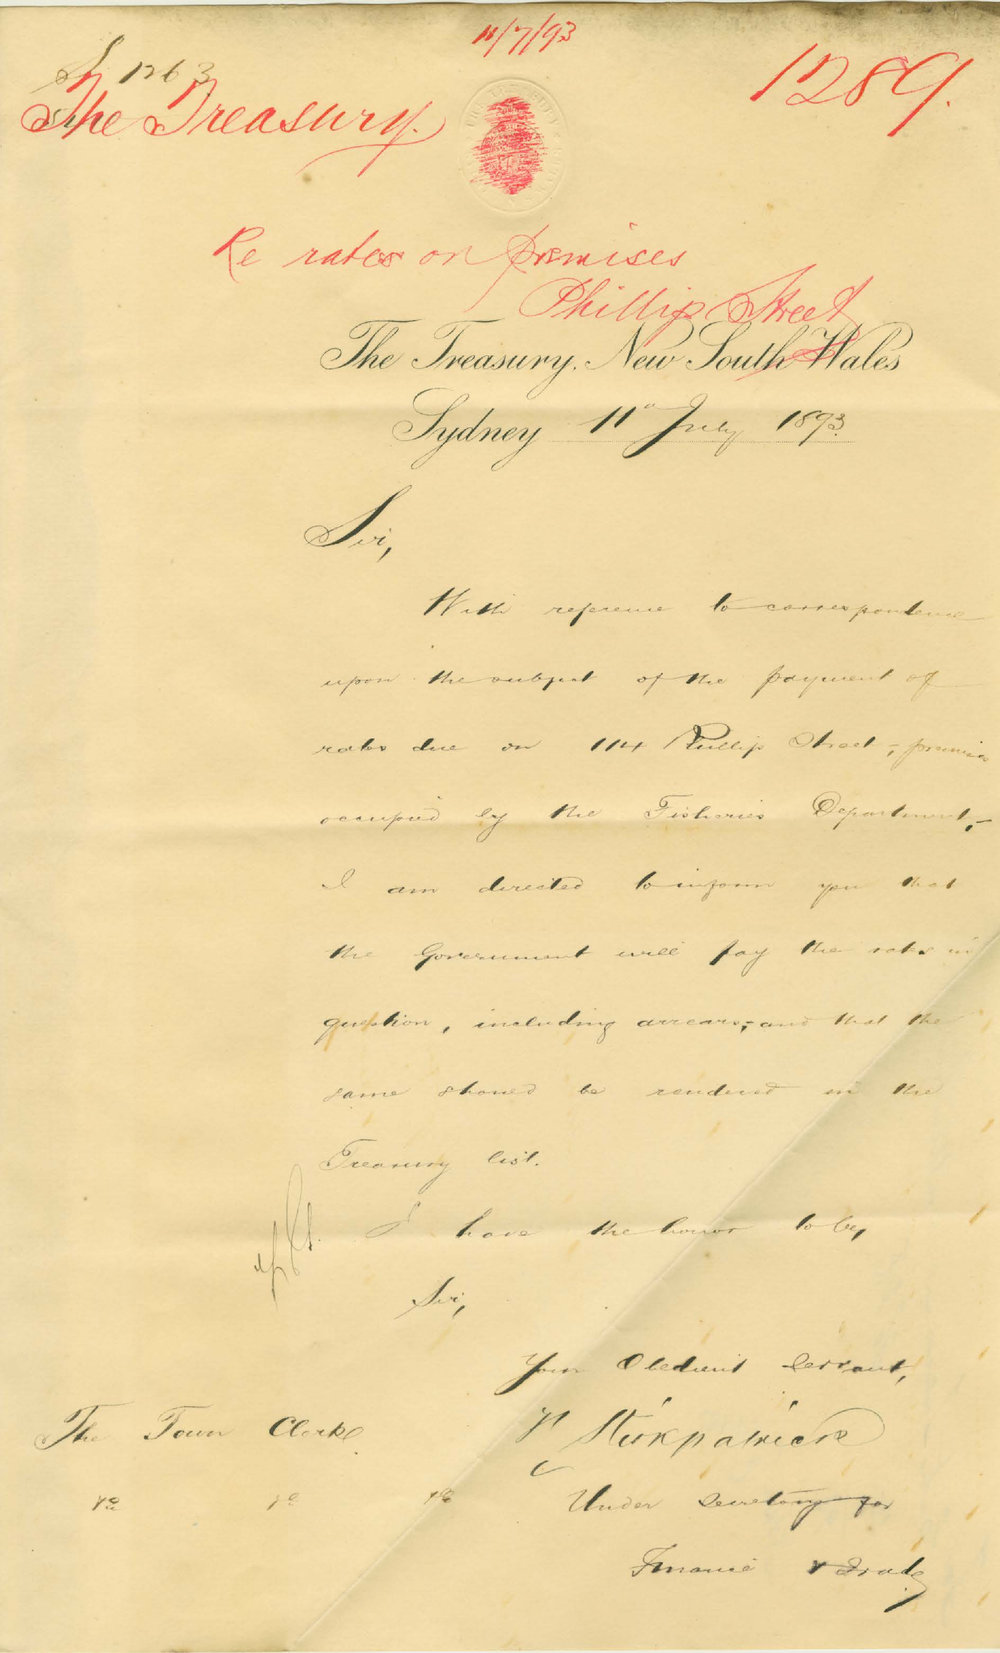 11/7/93
1263
1289.
The Treasury.
Re rates on premises
Phillip Street
The Treasury, New South Wales
Sydney 11th July 1893.
Sir,
With reference to correspondence
upon the subject of the payment of
rates due on 114 Phillip Street, premises
occupied by the Fisheries Department,
I am directed to inform you that
the Government will pay the rates in
question, including arrears, and that the
same should be rendered in the
Treasury list.
I have the honor to be,
Sir,
Your Obedient Servant,
Kirkpatrick
The Town Clerk
Under Secretary for
Finance & Trade